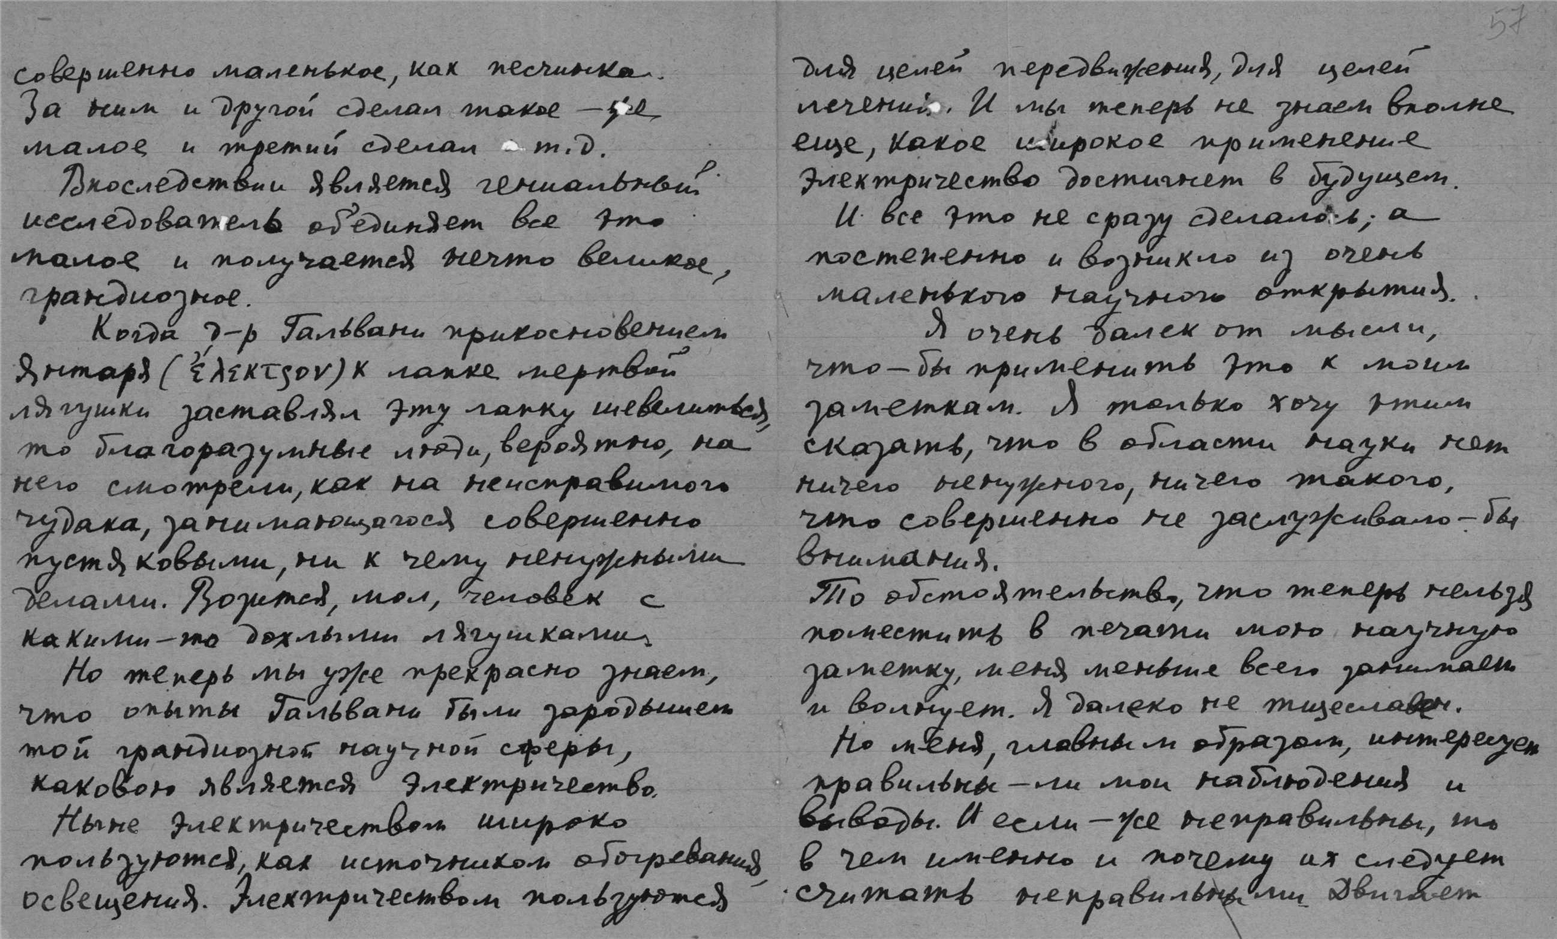 57
совершенно маленькое, как песчинка.
За ним и другой сделал такое — же
малое и третий сделал и т.д.
Впоследствии является гениальный
исследователь об'единяет все это
малое и получается нечто великое,
грандиозное.
Когда д-р Гальвани прикосновением
янтаря (ἤλεκτρον) к лапке мертвой
лягушки заставлял эту лапку шевелиться,
то благоразумные люди, вероятно, на
него смотрели, как на неисправимого
чудака, занимающагося совершенно
пустяковыми, ни к чему ненужными
делами. Возится, мол, человек с
какими-то дохлыми лягушками.
Но теперь мы уже прекрасно знаем,
что опыты Гальвани были зародышем
той грандиозной научной сферы,
каковою является электричество.
Ныне электричеством широко
пользуются, как источником обогревания,
освещения. Электричеством пользуются
для целей передвижения, для целей
лечения. И мы теперь не знаем вполне
еще, какое широкое применение
электричество достигнет в будущем.
И все это не сразу сделалось; а
постепенно и возникло из очень
маленького научного открытия.
Я очень далек от мысли,
что-бы применить это к моим
заметкам. Я только хочу этим
сказать, что в области науки нет
ничего ненужного, ничего такого,
что совершенно не заслуживало-бы
внимания.
То обстоятельство, что теперь нельзя
поместить в печати мою научную
заметку, меня меньше всего занимает
и волнует. Я далеко не тщеславен.
Но меня, главным образом, интересует
правильны-ли мои наблюдения и
выводы. И если-же неправильны, то
в чем именно и почему их следует
считать неправильными. Двигает